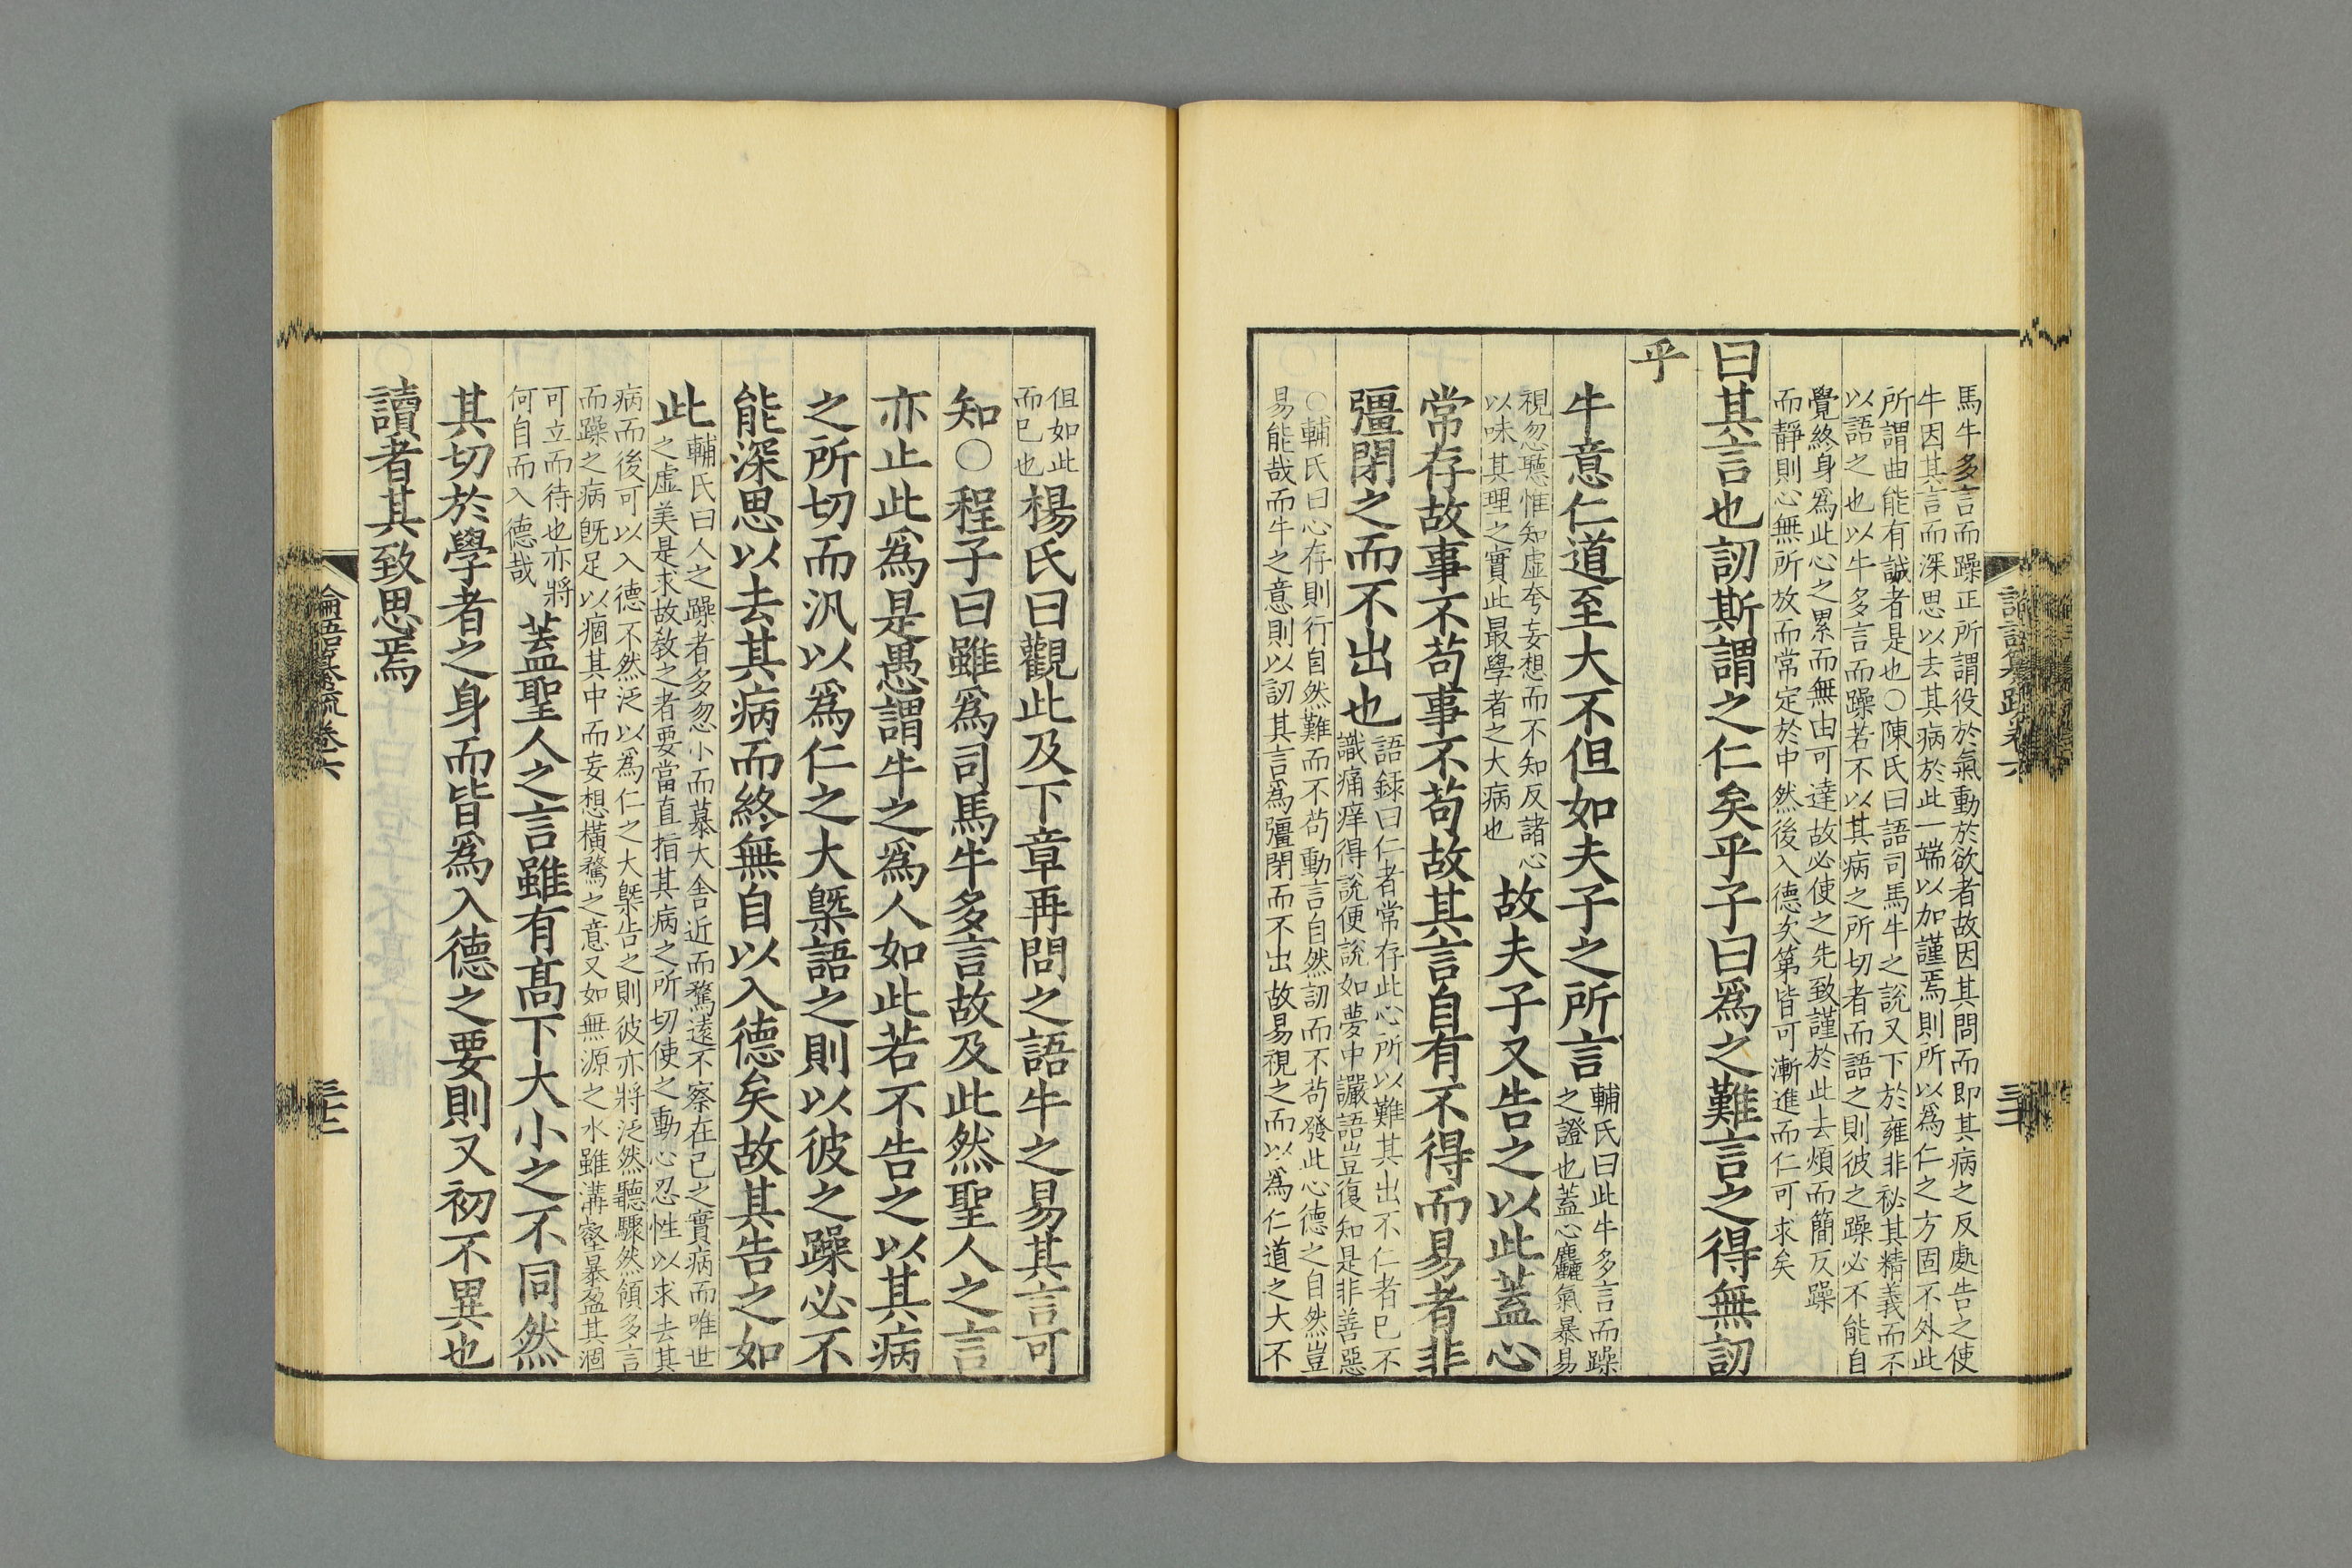 馬牛多言而躁正所謂役於氣動於欲者故因其問而即其病之反處告之使
牛因其言而深思以去其病於此一端以加謹焉則所以為仁之方固不外此
所謂曲能有誠者是也○陳氏曰語司馬牛之說又下於雍非祕其精義而不
以語之也以牛多言而躁若不以其病之所切者而語之則彼之躁必不能自
覺終身為此心之累而無由可達故必使之先致謹於此去煩而簡反躁
而靜則心無所放而常定於中然後入德次第皆可漸進而仁可求矣
曰其言也訒斯謂之仁矣乎子曰爲之難言之得無訒
乎
牛意仁道至大不但如夫子之所言
輔氏曰此牛多言而躁
之證也蓋心麤氣暴易
視忽聽惟知虛夸妄想而不知反諸心
以味其理之實此最學者之大病也
故夫子又告之以此蓋心
常存故事不苟事不苟故其言自有不得而易者非
彊閉之而不出也
語録曰仁者常存此心所以難其出不仁者已不
識痛痒得說便說如夢中讝語豈復知是非善惡
○輔氏曰心存則行自然難而不苟動言自然訒而不苟發此心德之自然豈
易能哉而牛之意則以訒其言爲彊閉而不出故易視之而以為仁道之大不
但如此
而已也
楊氏曰觀此及下章再問之語牛之易其言可
知○程子曰雖爲司馬牛多言故及此然聖人之言
亦止此爲是愚謂牛之爲人如此若不告之以其病
之所切而汎以爲仁之大槩語之則以彼之躁必不
能深思以去其病而終無自以入德矣故其告之如
此
輔氏曰人之躁者多忽小而慕大舍近而騖遠不察在己之實病而唯世
之虛美是求故教之者要當直指其病之所切使之動心忍性以求去其
病而後可以入德不然泛以為仁之大槩告之則彼亦將泛然聽驟然領多言
而躁之病既足以痼其中而妄想橫騖之意又如無源之水雖溝壑暴盈其涸
可立而待也亦將
何自而入德哉
蓋聖人之言雖有高下大小之不同然
其切於學者之身而皆爲入德之要則又初不異也
讀者其致思焉
論語纂疏卷六